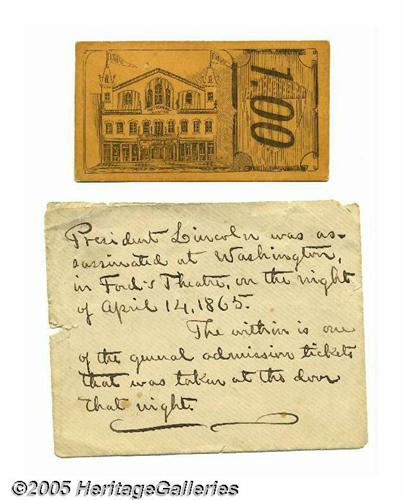 1.00
President Lincoln was as-
sassinated at Washington,
in Ford's Theatre, on the night
of April 14, 1865.
The within is one
of the general admission tickets
that was taken at the door
that night.
©2005 HeritageGalleries